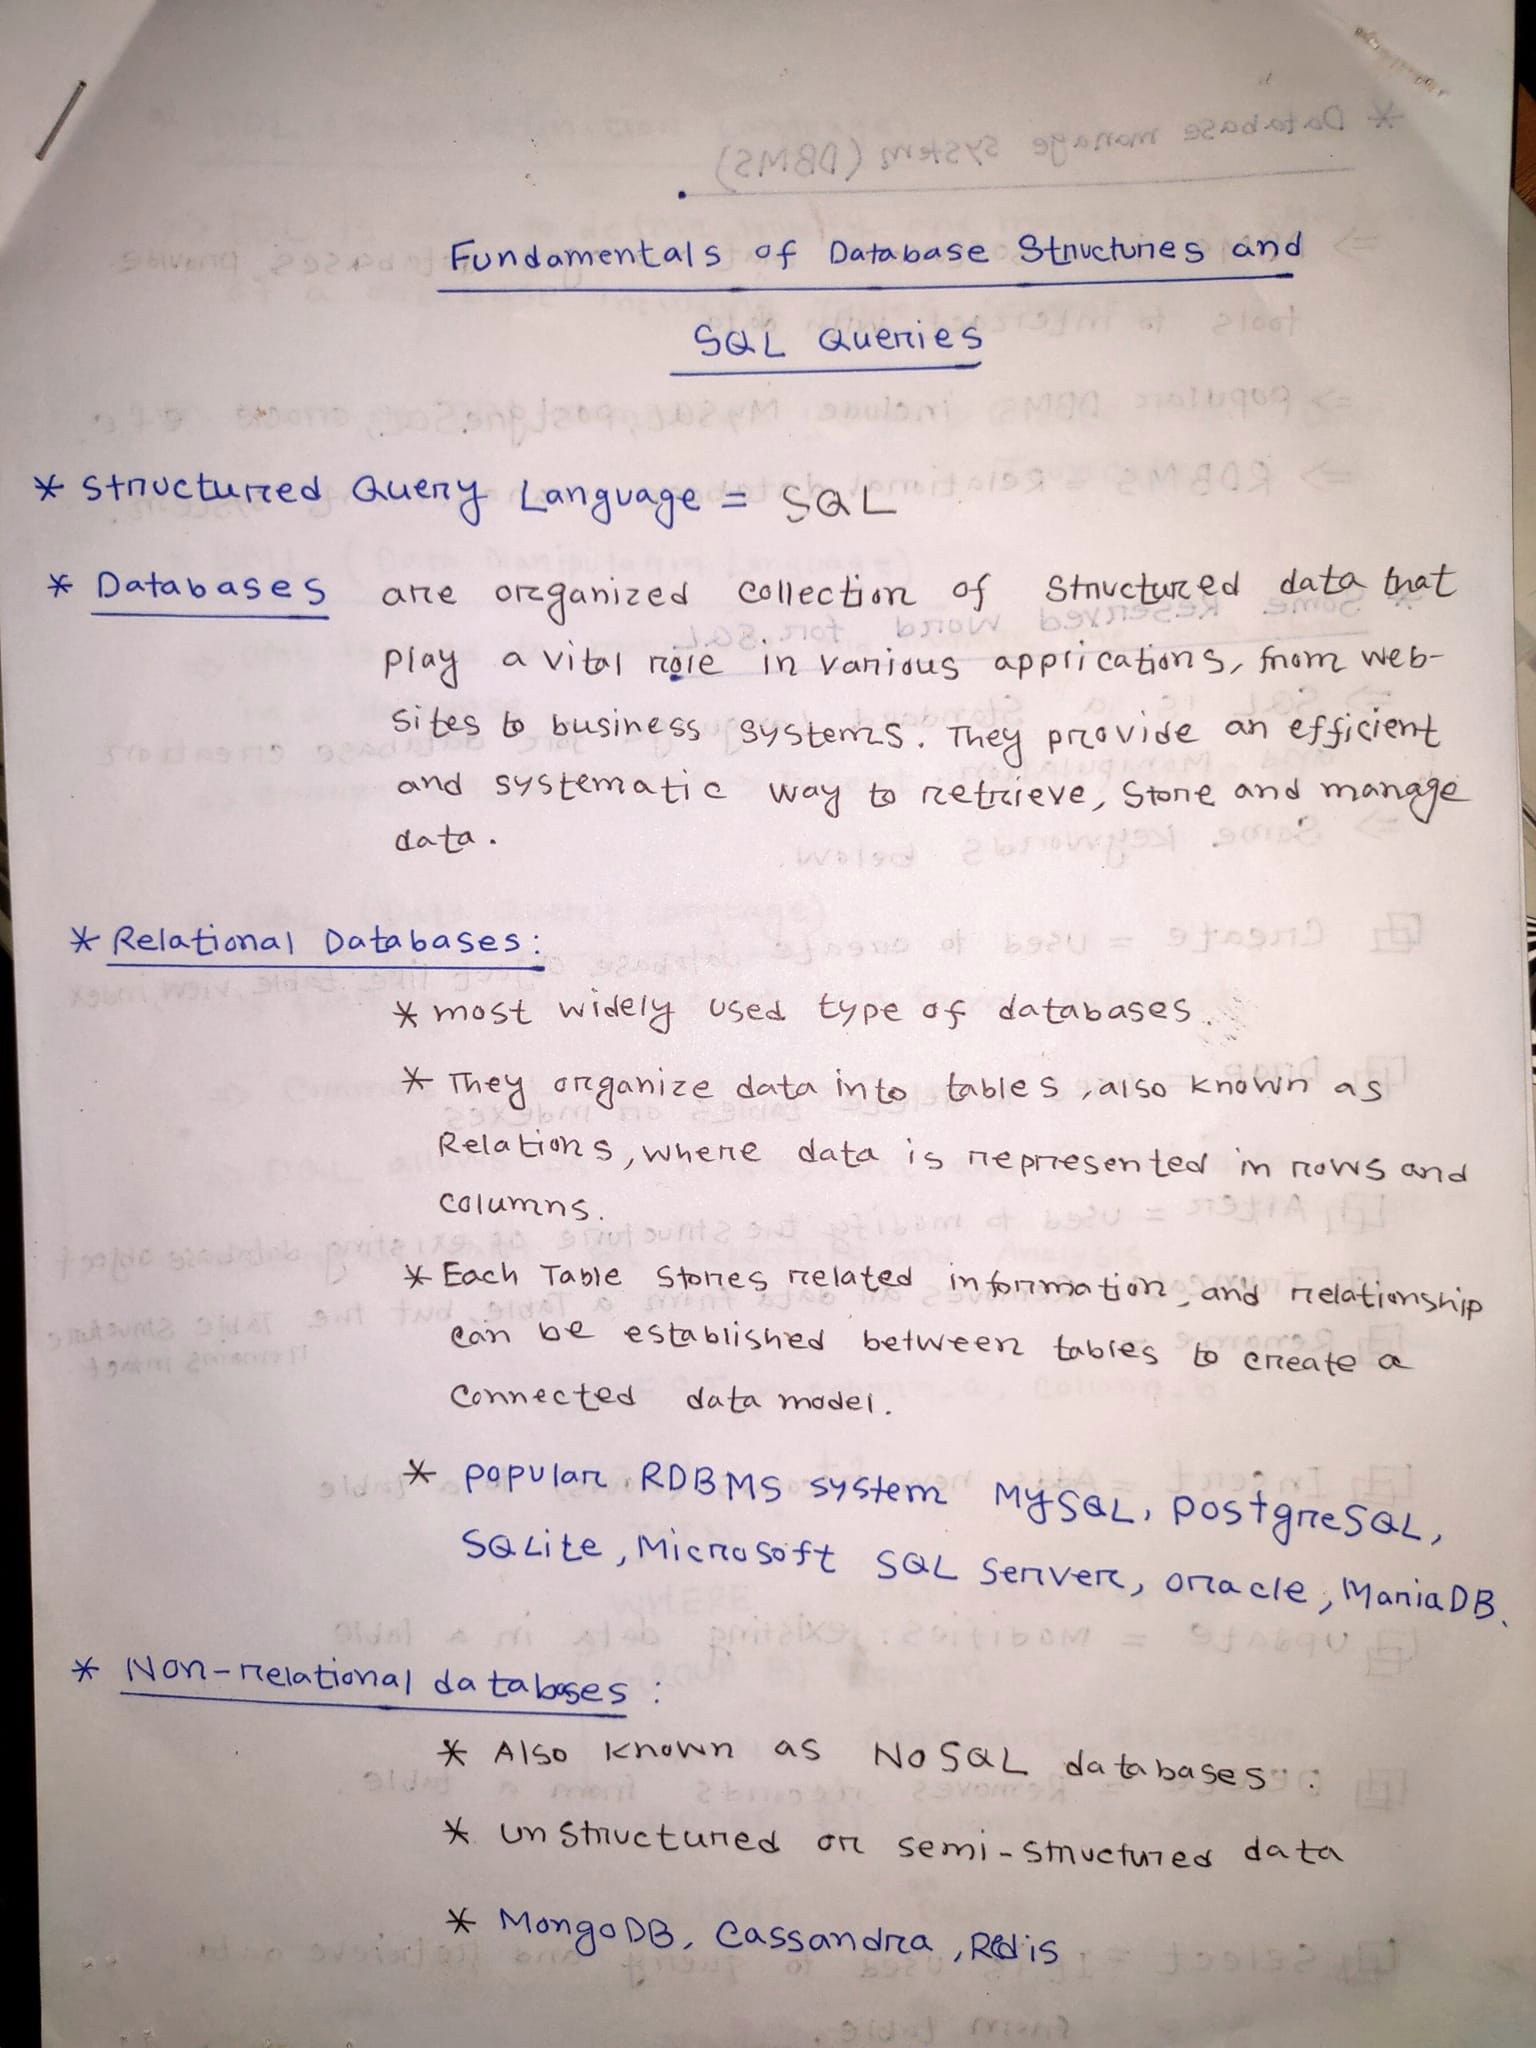 Fundamentals of Database Structures and
SQL Queries
* Structured Query Language = SQL
* Databases are organized collection of Structured data that
play a vital role in various applications, from web-
sites to business systems. They provide an efficient
and systematic way to retrieve, Store and manage
data.
* Relational Databases:
* most widely used type of databases.
* They organize data into tables, also known as
Relations, where data is represented in rows and
columns.
* Each Table Stores related information, and relationship
can be established between tables to create a
Connected data model.
* popular RDBMS system MySQL, PostgreSQL,
SQLite, Microsoft SQL Server, oracle, MariaDB.
* Non-relational databases:
* Also known as NoSQL databases.
* unstructured or semi-structured data
* MongoDB, Cassandra, Redis